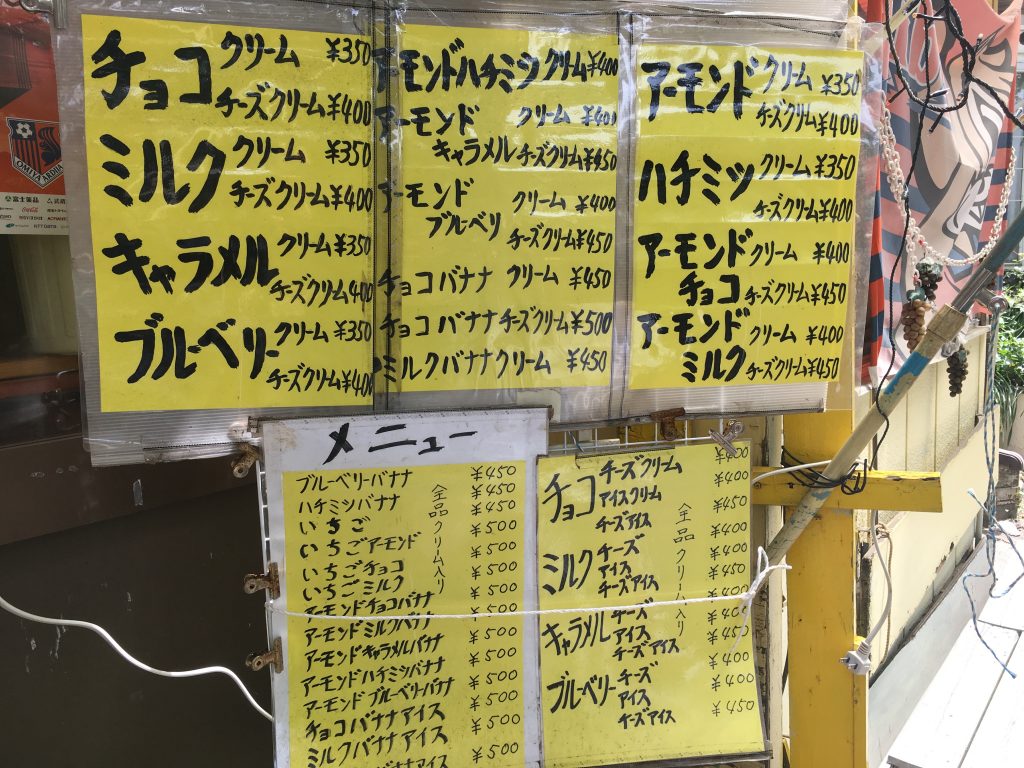 チョコ クリーム ¥350
チーズクリーム¥400
ミルク クリーム ¥350
チーズクリーム¥400
キャラメル クリーム¥350
チーズクリーム400
ブルーベリー クリーム ¥350
チーズクリーム¥400
アーモンドハチミツ クリーム¥400
アーモンド クリーム ¥400
キャラメル チーズクリーム¥450
アーモンド クリーム ¥400
ブルーベリ チーズクリーム ¥450
チョコバナナ クリーム ¥450
チョコバナナチーズクリーム¥500
ミルクバナナクリーム ¥450
アーモンド クリーム ¥350
チーズクリーム¥400
ハチミツ クリーム¥350
チーズクリーム¥400
アーモンド クリーム ¥400
チョコ チーズクリーム¥450
アーモンド クリーム ¥400
ミルク チーズクリーム¥450
メニュー
全品クリーム入り
ブルーベリーバナナ ¥450
ハチミツバナナ ¥450
いちご ¥450
いちごアーモンド ¥500
いちごチョコ ¥500
いちごミルク ¥500
アーモンドチョコバナナ ¥500
アーモンドミルクバナナ ¥500
アーモンドキャラメルバナナ ¥500
アーモンドハチミツバナナ ¥500
アーモンドブルーベリバナナ ¥500
チョコバナナアイス ¥500
ミルクバナナアイス ¥500
バナナアイス
全品クリーム入り
チョコ チーズクリーム ¥400
アイスクリーム ¥400
チーズアイス ¥450
ミルク チーズ ¥400
アイス ¥400
チーズアイス ¥450
キャラメル チーズ ¥400
アイス ¥400
チーズアイス ¥450
ブルーベリー チーズ ¥400
アイス ¥400
チーズアイス ¥450
OMIYA ARDIJA
富士薬品
Coca-Cola